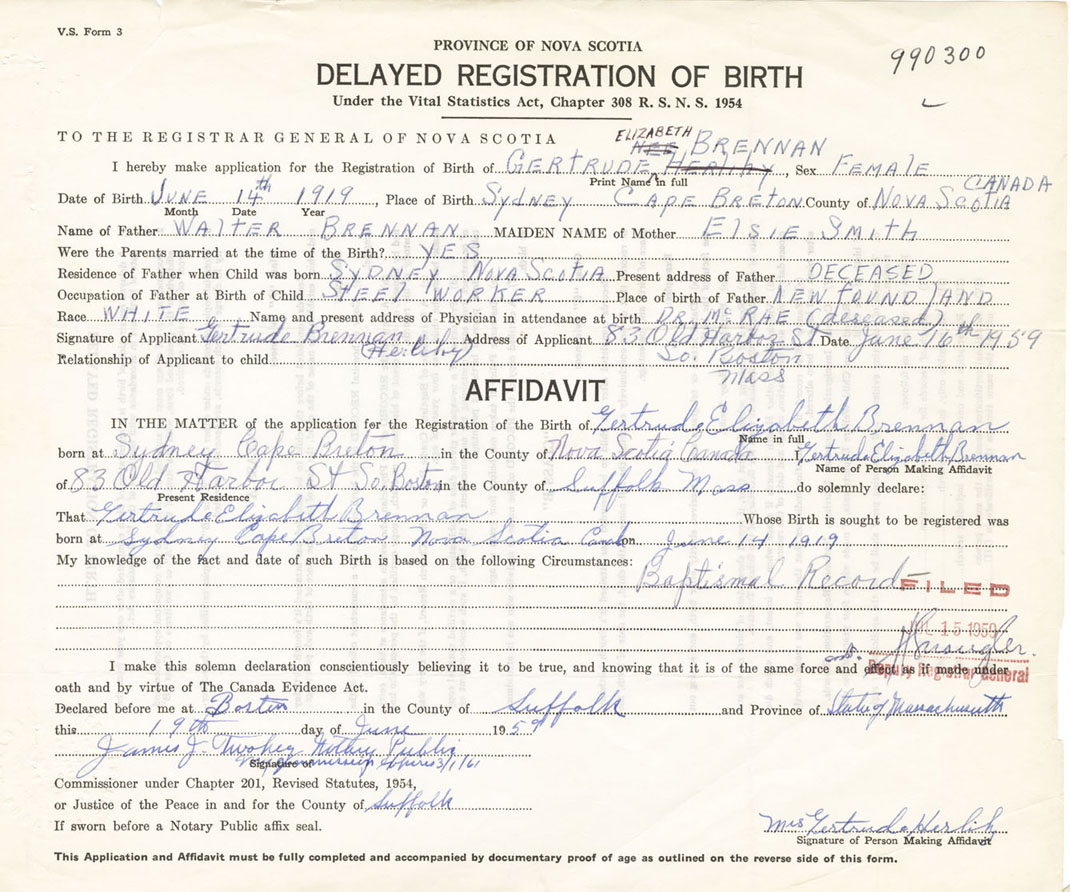 V.S. Form 3
990300
PROVINCE OF NOVA SCOTIA
DELAYED REGISTRATION OF BIRTH
Under the Vital Statistics Act, Chapter 308 R. S. N. S. 1954
TO THE REGISTRAR GENERAL OF NOVA SCOTIA
ELIZABETH
NEE BRENNAN
I hereby make application for the Registration of Birth of GERTRUDE Herlihy, Sex FEMALE
Print Name in full
CANADA
Date of Birth JUNE 14th 1919, Place of Birth SYDNEY CAPE BRETON County of NOVA SCOTIA
Month Date Year
Name of Father WALTER BRENNAN MAIDEN NAME of Mother ELSIE SMITH
Were the Parents married at the time of the Birth? YES
Residence of Father when Child was born SYDNEY NOVA SCOTIA Present address of Father DECEASED
Occupation of Father at Birth of Child STEEL WORKER Place of birth of Father NEWFOUNDLAND
Race WHITE Name and present address of Physician in attendance at birth DR. McRAE (deseased)
Signature of Applicant Gertrude Brennan Address of Applicant 83 Old Harbor St Date June 16th 1959
(Herlihy) So. Boston
Relationship of Applicant to child
Mass
AFFIDAVIT
IN THE MATTER of the application for the Registration of the Birth of Gertrude Elizabeth Brennan
Name in full
born at Sydney Cape Breton in the County of Nova Scotia Canada I, Gertrude Elizabeth Brennan
Name of Person Making Affidavit
of 83 Old Harbor St So. Boston in the County of Suffolk Mass do solemnly declare:
Present Residence
That Gertrude Elizabeth Brennan Whose Birth is sought to be registered was
born at Sydney Cape Breton Nova Scotia Can on June 14 1919
My knowledge of the fact and date of such Birth is based on the following Circumstances: Baptismal Record
FILED
JUL 15 1959
Deputy Registrar General
I make this solemn declaration conscientiously believing it to be true, and knowing that it is of the same force and effect as if made under
oath and by virtue of The Canada Evidence Act.
Declared before me at Boston in the County of Suffolk and Province of State of Massachusetts
this 19th day of June 1959
James J. Twohey Notary Public
My Commission expires 3/1/61
Signature of
Commissioner under Chapter 201, Revised Statutes, 1954,
or Justice of the Peace in and for the County of Suffolk
If sworn before a Notary Public affix seal.
Mrs Gertrude Herlihy
Signature of Person Making Affidavit
This Application and Affidavit must be fully completed and accompanied by documentary proof of age as outlined on the reverse side of this form.